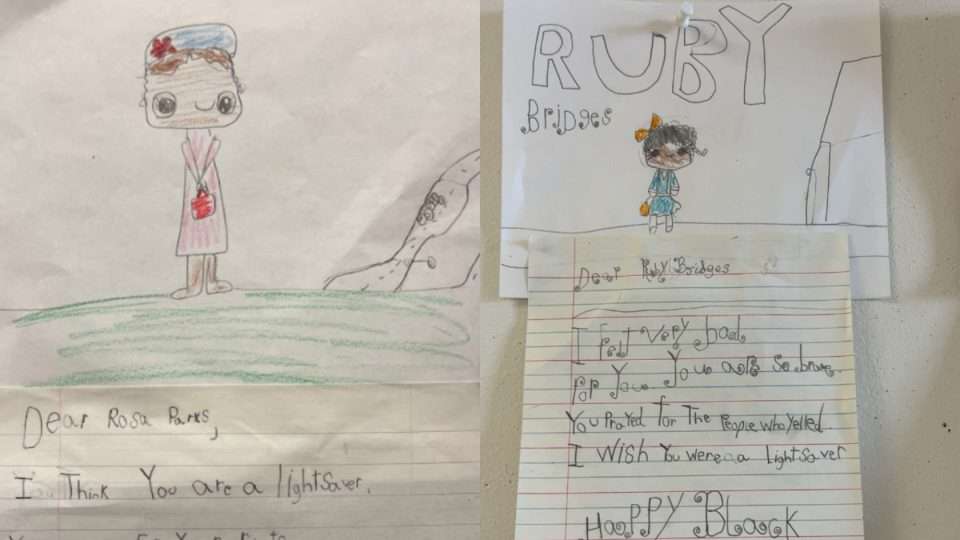 Dear Rosa Parks,
I Think You are a lightsaver.
RUBY
BRIDges
Dear Ruby Bridges
I felt very bad
for You You are so brave.
You Prayed for The People who yelled
I Wish You were a lightsaver
HAPPY BLack